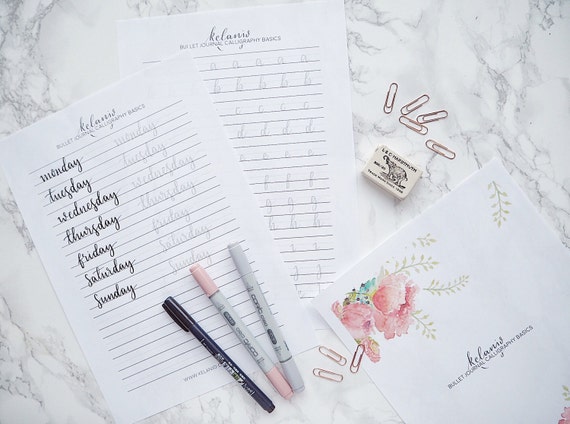 kelanis
BULLET JOURNAL CALLIGRAPHY BASICS
a a a
b b b
c c c
d d d
kelanis
BULLET JOURNAL CALLIGRAPHY BASICS
monday monday
tuesday tuesday
wednesday wednesday
thursday thursday
friday friday
saturday saturday
sunday sunday
L & C HARDTMUTH
kelanis
BULLET JOURNAL CALLIGRAPHY BASICS